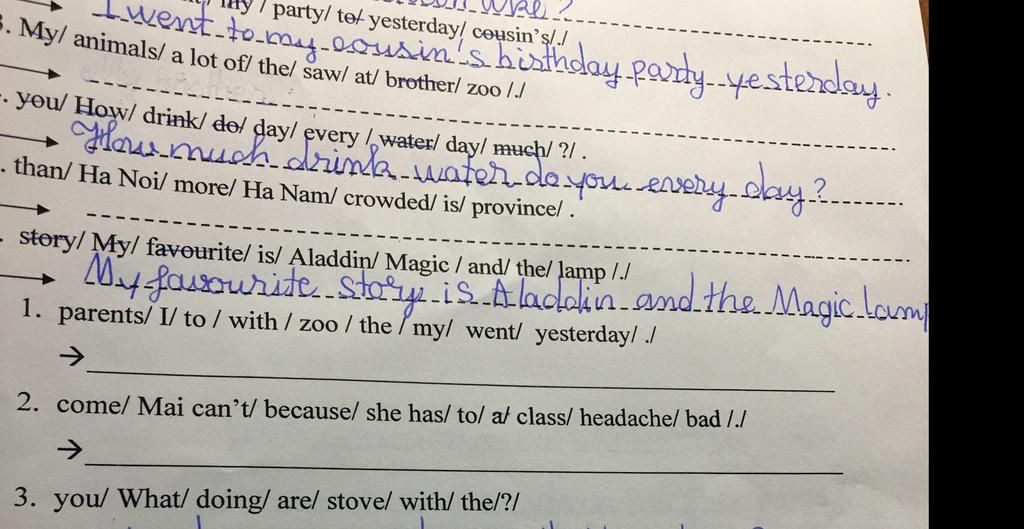 my / party/ to/ yesterday/ cousin's/./
I went to my cousin's birthday party yesterday.
. My/ animals/ a lot of/ the/ saw/ at/ brother/ zoo /./
. you/ How/ drink/ do/ day/ every / water/ day/ much/ ?/ .
How much drink water do you every day?
. than/ Ha Noi/ more/ Ha Nam/ crowded/ is/ province/ .
. story/ My/ favourite/ is/ Aladdin/ Magic / and/ the/ lamp /./
My favourite story is Aladdin and the Magic lamp
1. parents/ I/ to / with / zoo / the / my/ went/ yesterday/ ./
→
2. come/ Mai can't/ because/ she has/ to/ a/ class/ headache/ bad /./
→
3. you/ What/ doing/ are/ stove/ with/ the/?/